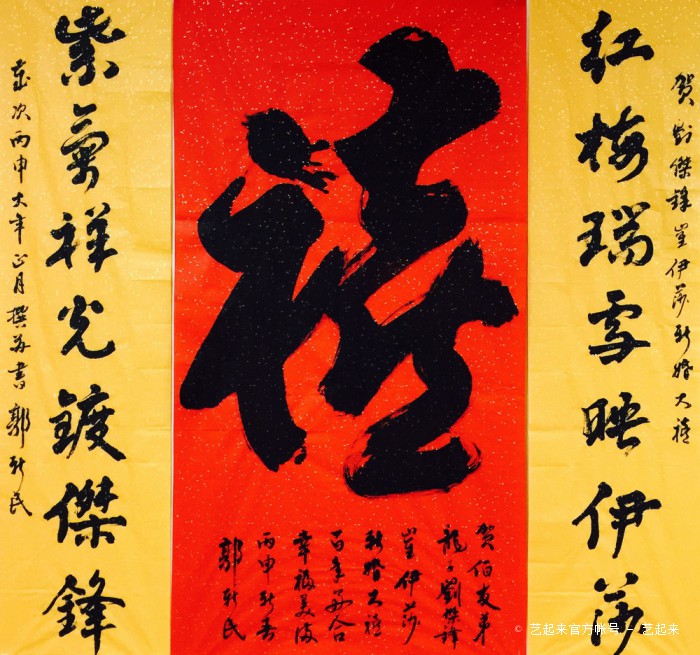 贺劉傑鋒崔伊莎新婚大禧
红梅瑞雪映伊莎
禧
贺伯友弟
龍子劉傑鋒
崔伊莎
新婚大禧
百年好合
幸福美满
丙申新春
郭新民
紫氣祥光鍍傑鋒
歲次丙申大年正月撰并書 郭新民
© 艺起来官方帐号 - 艺起来